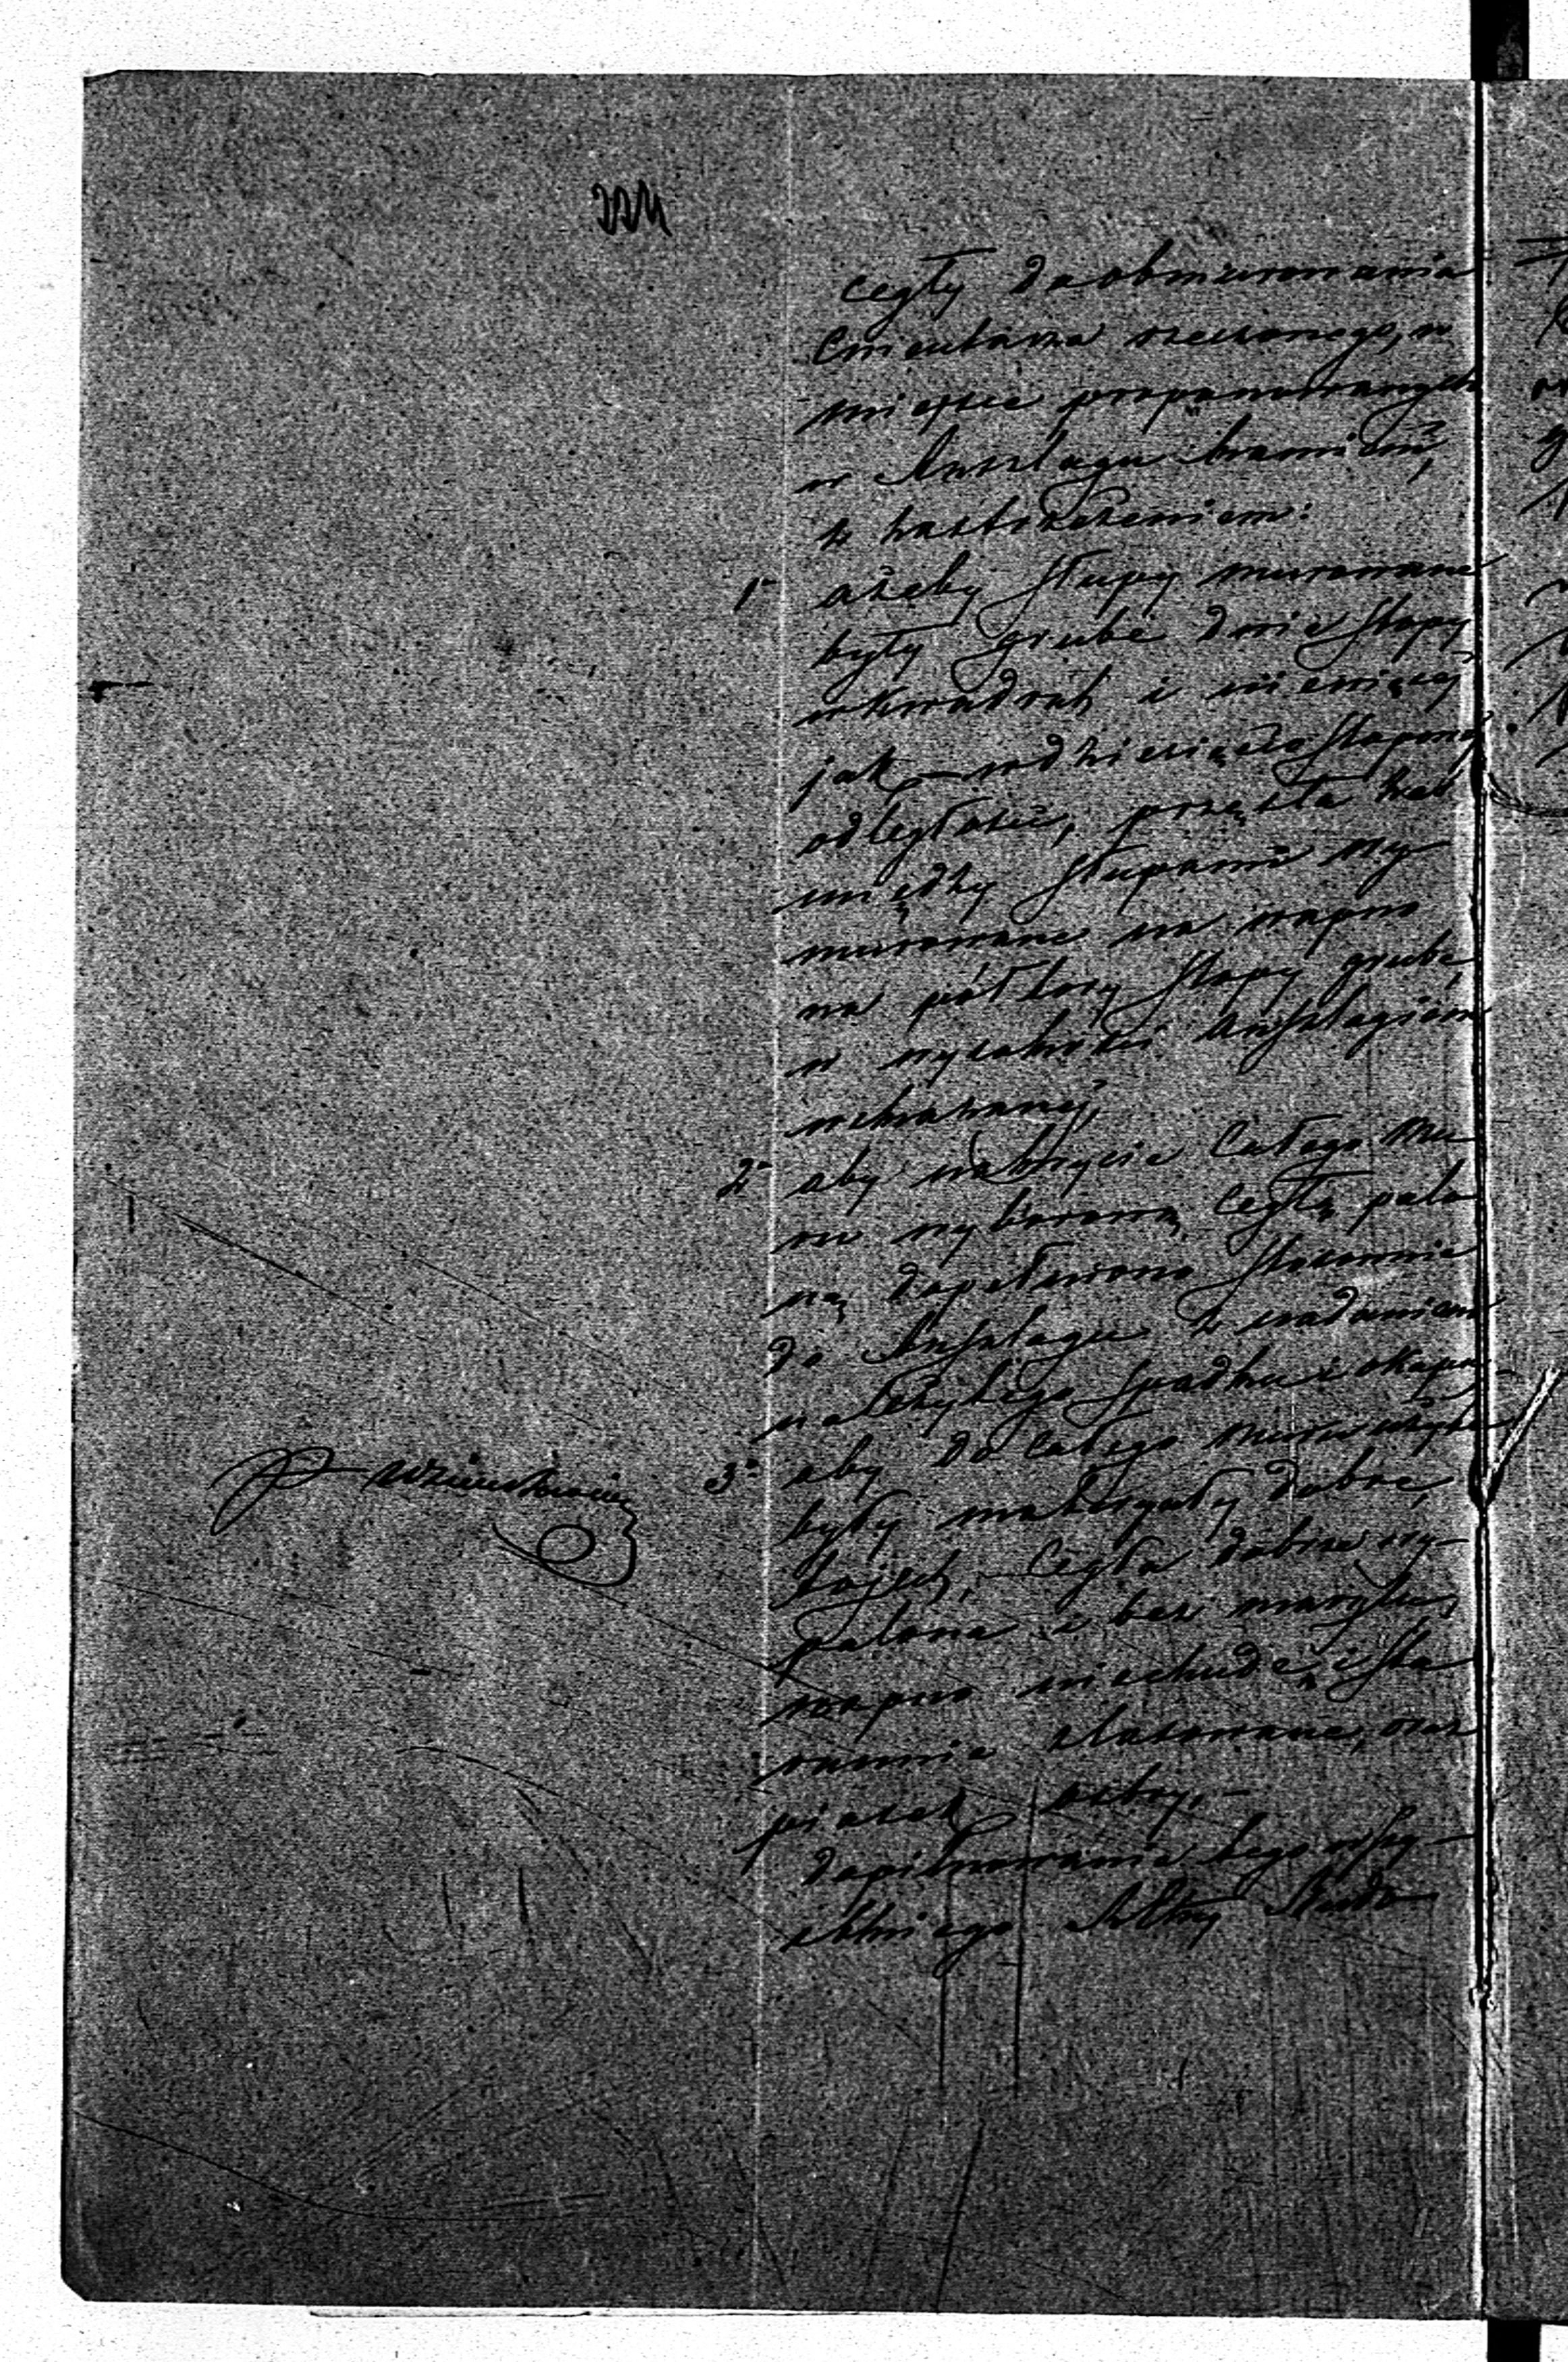 224
cegły do obmurowania
Cmentarza rzeczonego, w
miejsce proponowanych
w Anszlagu kamieni,
z zastrzeżeniem:
1° ażeby słupy murowane
były grube dwie stopy
w kwadrat i nie więcej
jak w dziesięcio stopowej
odległości, przęsła zaś
między słupami wy-
murowane na wapno
na półtory stopy grube,
w wysokości Anszlagiem
wskazanej,
2° aby nakrycie całego mu-
ru wyborową cegłą palo-
ną dopełniono stosownie
do Anszlagu z nadaniem
należytego spadku i okapu.
3° aby do całego muru użyte
były materyały dobre,
to jest, Cegła dobrze wy-
palona i bez marglu,
wapno nie chude i sta-
rannie lasowane, oraz
piasek ostry. –
Dopilnowanie tego wszy-
stkiego